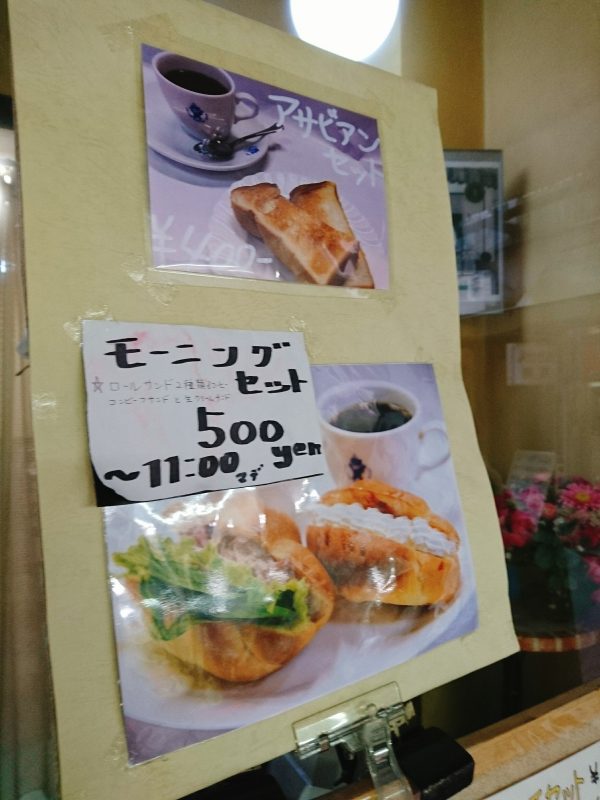 アサビアン
セット
¥400-
モーニング
セット
☆ ロールサンド2種類とコーヒー
コンビーフサンド と 生クリームサンド
500
yen
～11:00 マデ